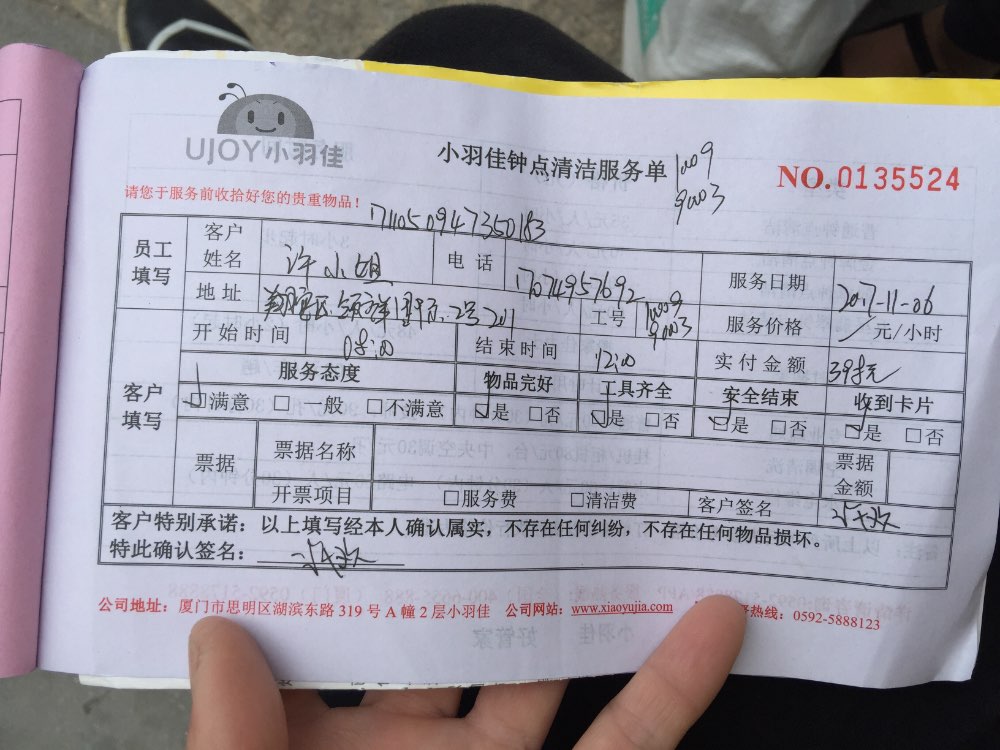 UJOY小羽佳
小羽佳钟点清洁服务单
1009
9003
NO. 0135524
请您于服务前收拾好您的贵重物品！
174050947350183
员工填写 客户姓名 许小姐 电话 17074957692 服务日期 2017-11-06
地址 2号201 工号 1009 9003 服务价格 / 元/小时
开始时间 08:00 结束时间 12:00 实付金额
客户填写 服务态度 物品完好 工具齐全 安全结束 收到卡片
☑满意 □一般 □不满意 ☑是 □否 ☑是 □否 ☑是 □否 ☑是 □否
票据 票据名称 票据金额
开票项目 □服务费 □清洁费 客户签名
客户特别承诺：以上填写经本人确认属实，不存在任何纠纷，不存在任何物品损坏。
特此确认签名：
公司地址：厦门市思明区湖滨东路 319 号 A 幢 2 层小羽佳 公司网站：www.xiaoyujia.com 热线：0592-5888123